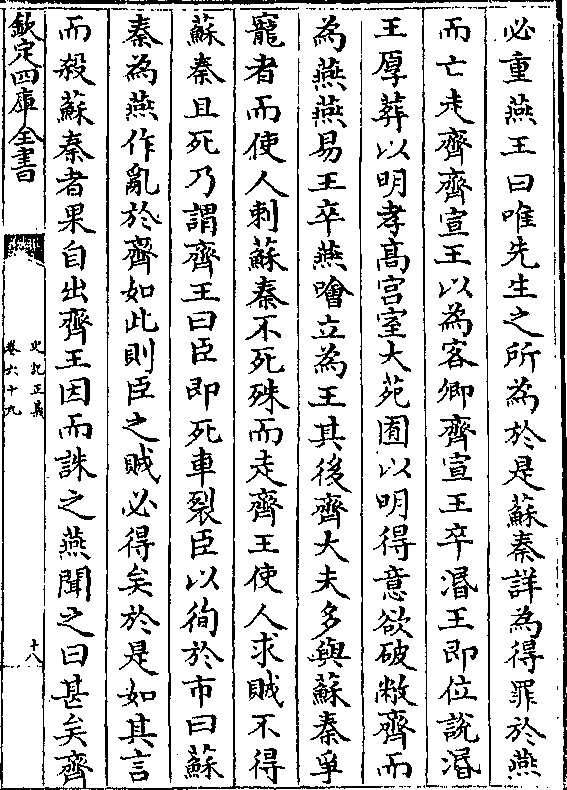 必重燕王曰唯先生之所為於是蘇秦詳為得罪於燕
而亡走齊齊宣王以為客卿齊宣王卒湣王即位說湣
王厚葬以明孝高宫室大苑囿以明得意欲破敝齊而
為燕燕易王卒燕噲立為王其後齊大夫多與蘇秦爭
寵者而使人刺蘇秦不死殊而走齊王使人求賊不得
蘇秦且死乃謂齊王曰臣即死車裂臣以徇於市曰蘇
秦為燕作亂於齊如此則臣之賊必得矣於是如其言
而殺蘇秦者果自出齊王因而誅之燕聞之曰甚矣齊
欽定四庫全書
史記正義
卷六十九
十八